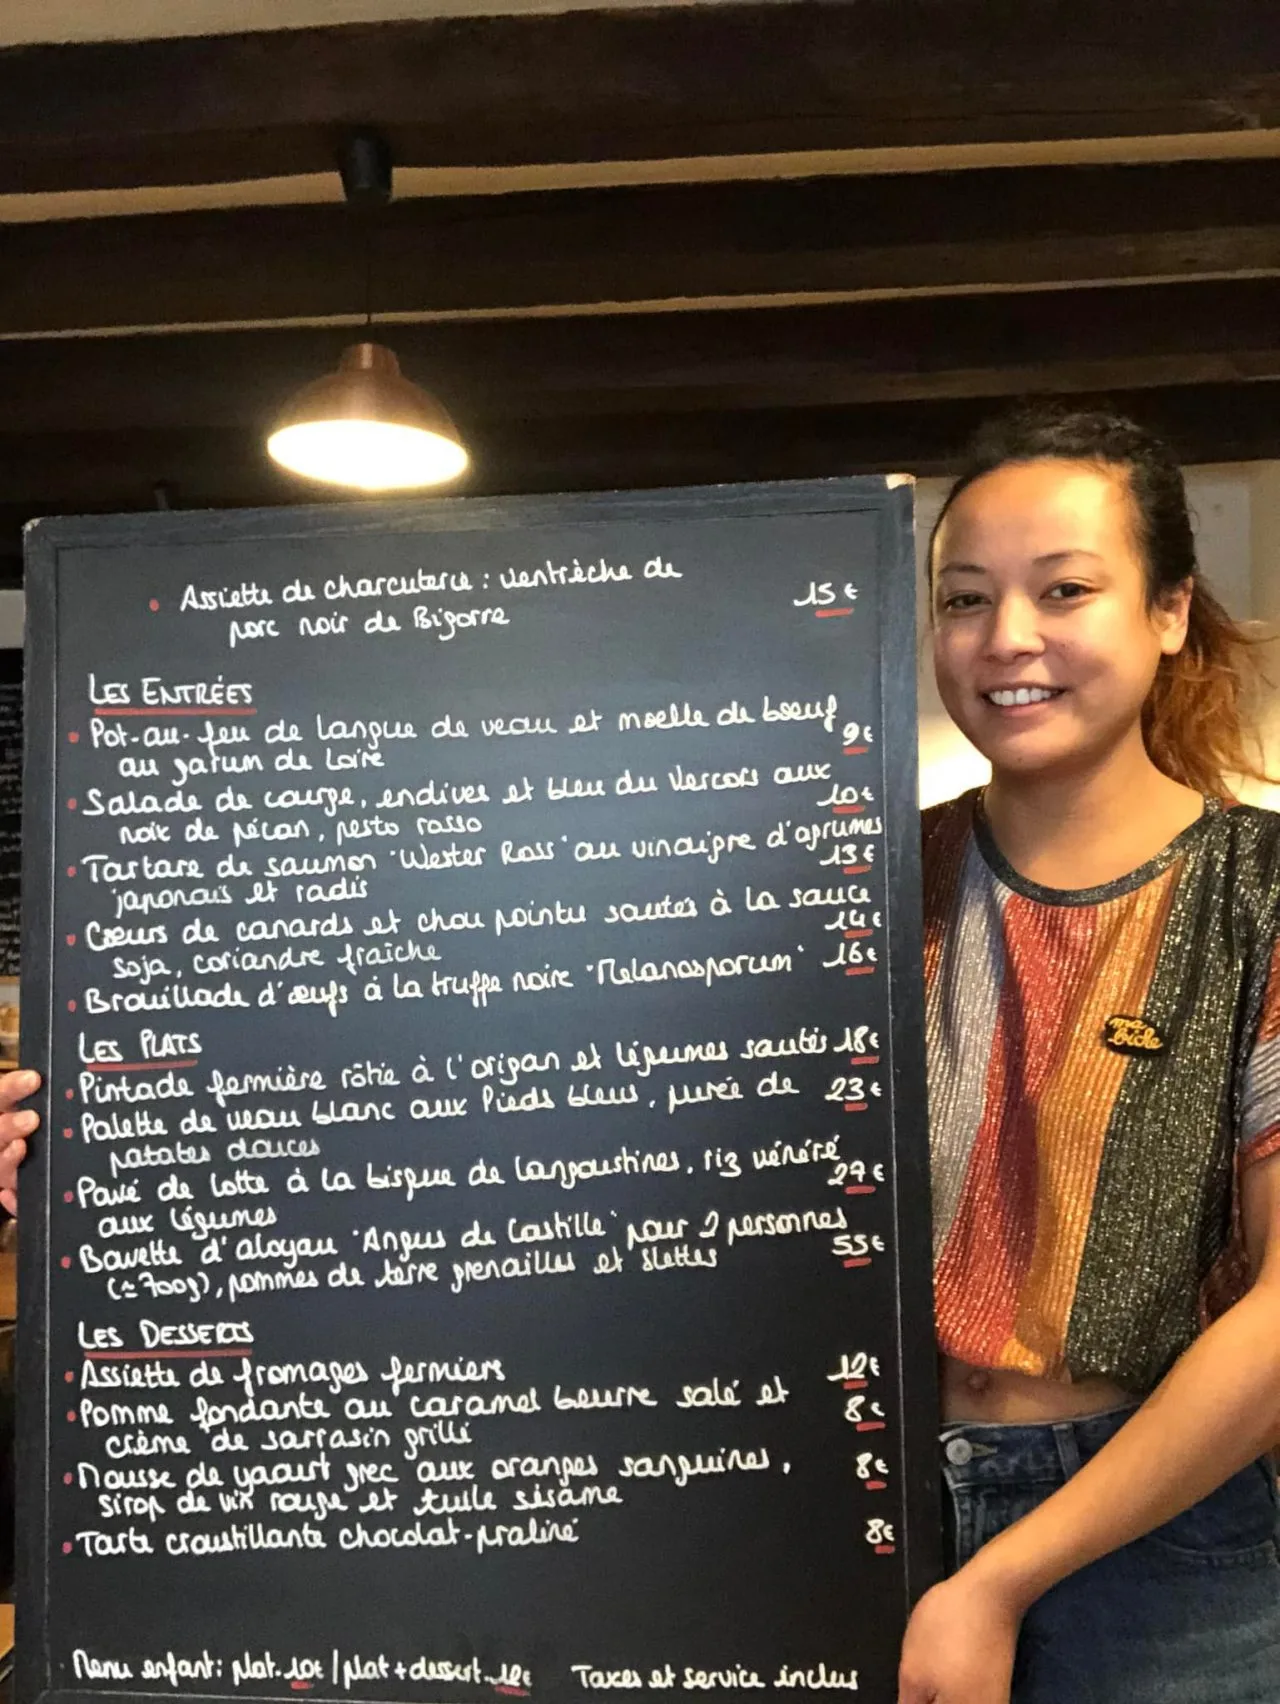 • Assiette de charcuterie : ventrèche de
porc noir de Bigorre 15€
LES ENTRÉES
• Pot-au-feu de langue de veau et moelle de boeuf
au garum de Loire 9€
• Salade de courge, endives et bleu du Vercors aux
noix de pécan, pesto rosso 10€
• Tartare de saumon "Wester Ross" au vinaigre d'agrumes
japonais et radis 13€
• Cœurs de canards et chou pointu sautés à la sauce
soja, coriandre fraîche 14€
• Brouillade d'œufs à la truffe noire "Melanosporum" 16€
LES PLATS
• Pintade fermière rôtie à l'origan et légumes sautés 18€
• Palette de veau blanc aux Pieds bleus, purée de 23€
patates douces
• Pavé de lotte à la bisque de langoustines, riz vénéré
aux légumes 27€
• Bavette d'aloyau "Angus de Castille" pour 2 personnes
(≃700g), pommes de terre grenailles et blettes 55€
LES DESSERTS
• Assiette de fromages fermiers 12€
• Pomme fondante au caramel beurre salé et 8€
crème de sarrasin grillé
• Mousse de yaourt grec aux oranges sanguines, 8€
sirop de vin rouge et tuile sésame
• Tarte croustillante chocolat-praliné 8€
Menu enfant: plat.10€ | plat + dessert.12€ Taxes et service inclus
ma
biche